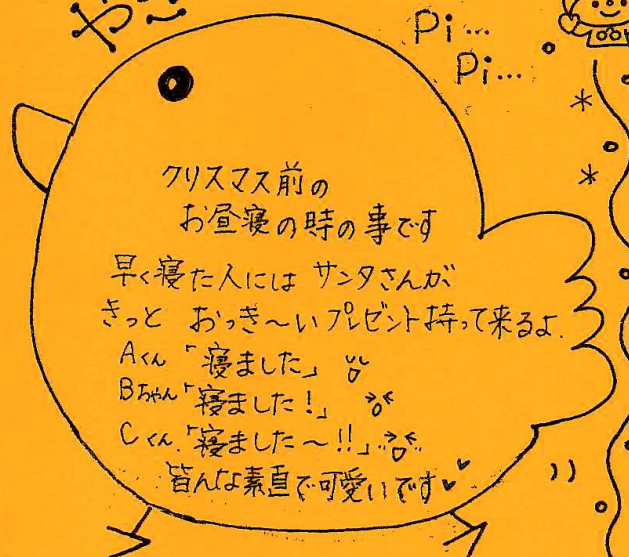 Pi…
Pi…
クリスマス前の
お昼寝の時の事です
早く寝た人には サンタさんが
きっと おっき～いプレゼント持って来るよ.
Aくん「寝ました」
Bちゃん「寝ました！」
Cくん.「寝ました～!!」
皆んな素直で可愛いです